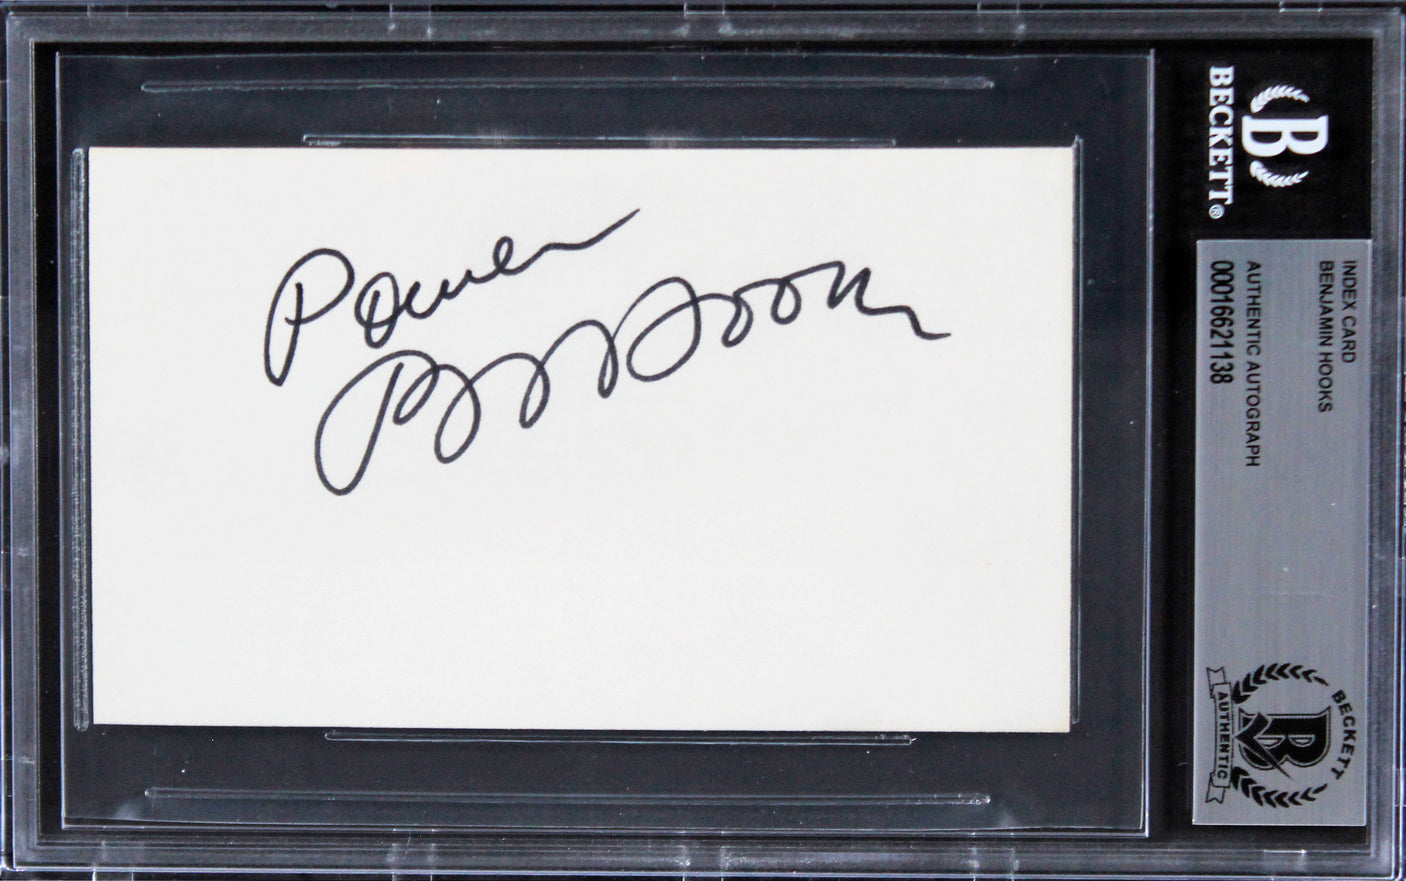 Power
B L Hooks
BECKETT®
INDEX CARD
BENJAMIN HOOKS
AUTHENTIC AUTOGRAPH
00016621138
BECKETT
AUTHENTIC